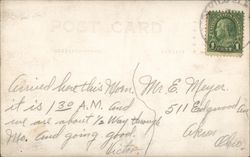 POST CARD
Arrived here this Morn.
it is 1 30 A.M. and
we are about ½ Way through
Mo. and going good.
Mr. E. Meyer.
511 Edgewood Ave
Akron
Ohio.
1